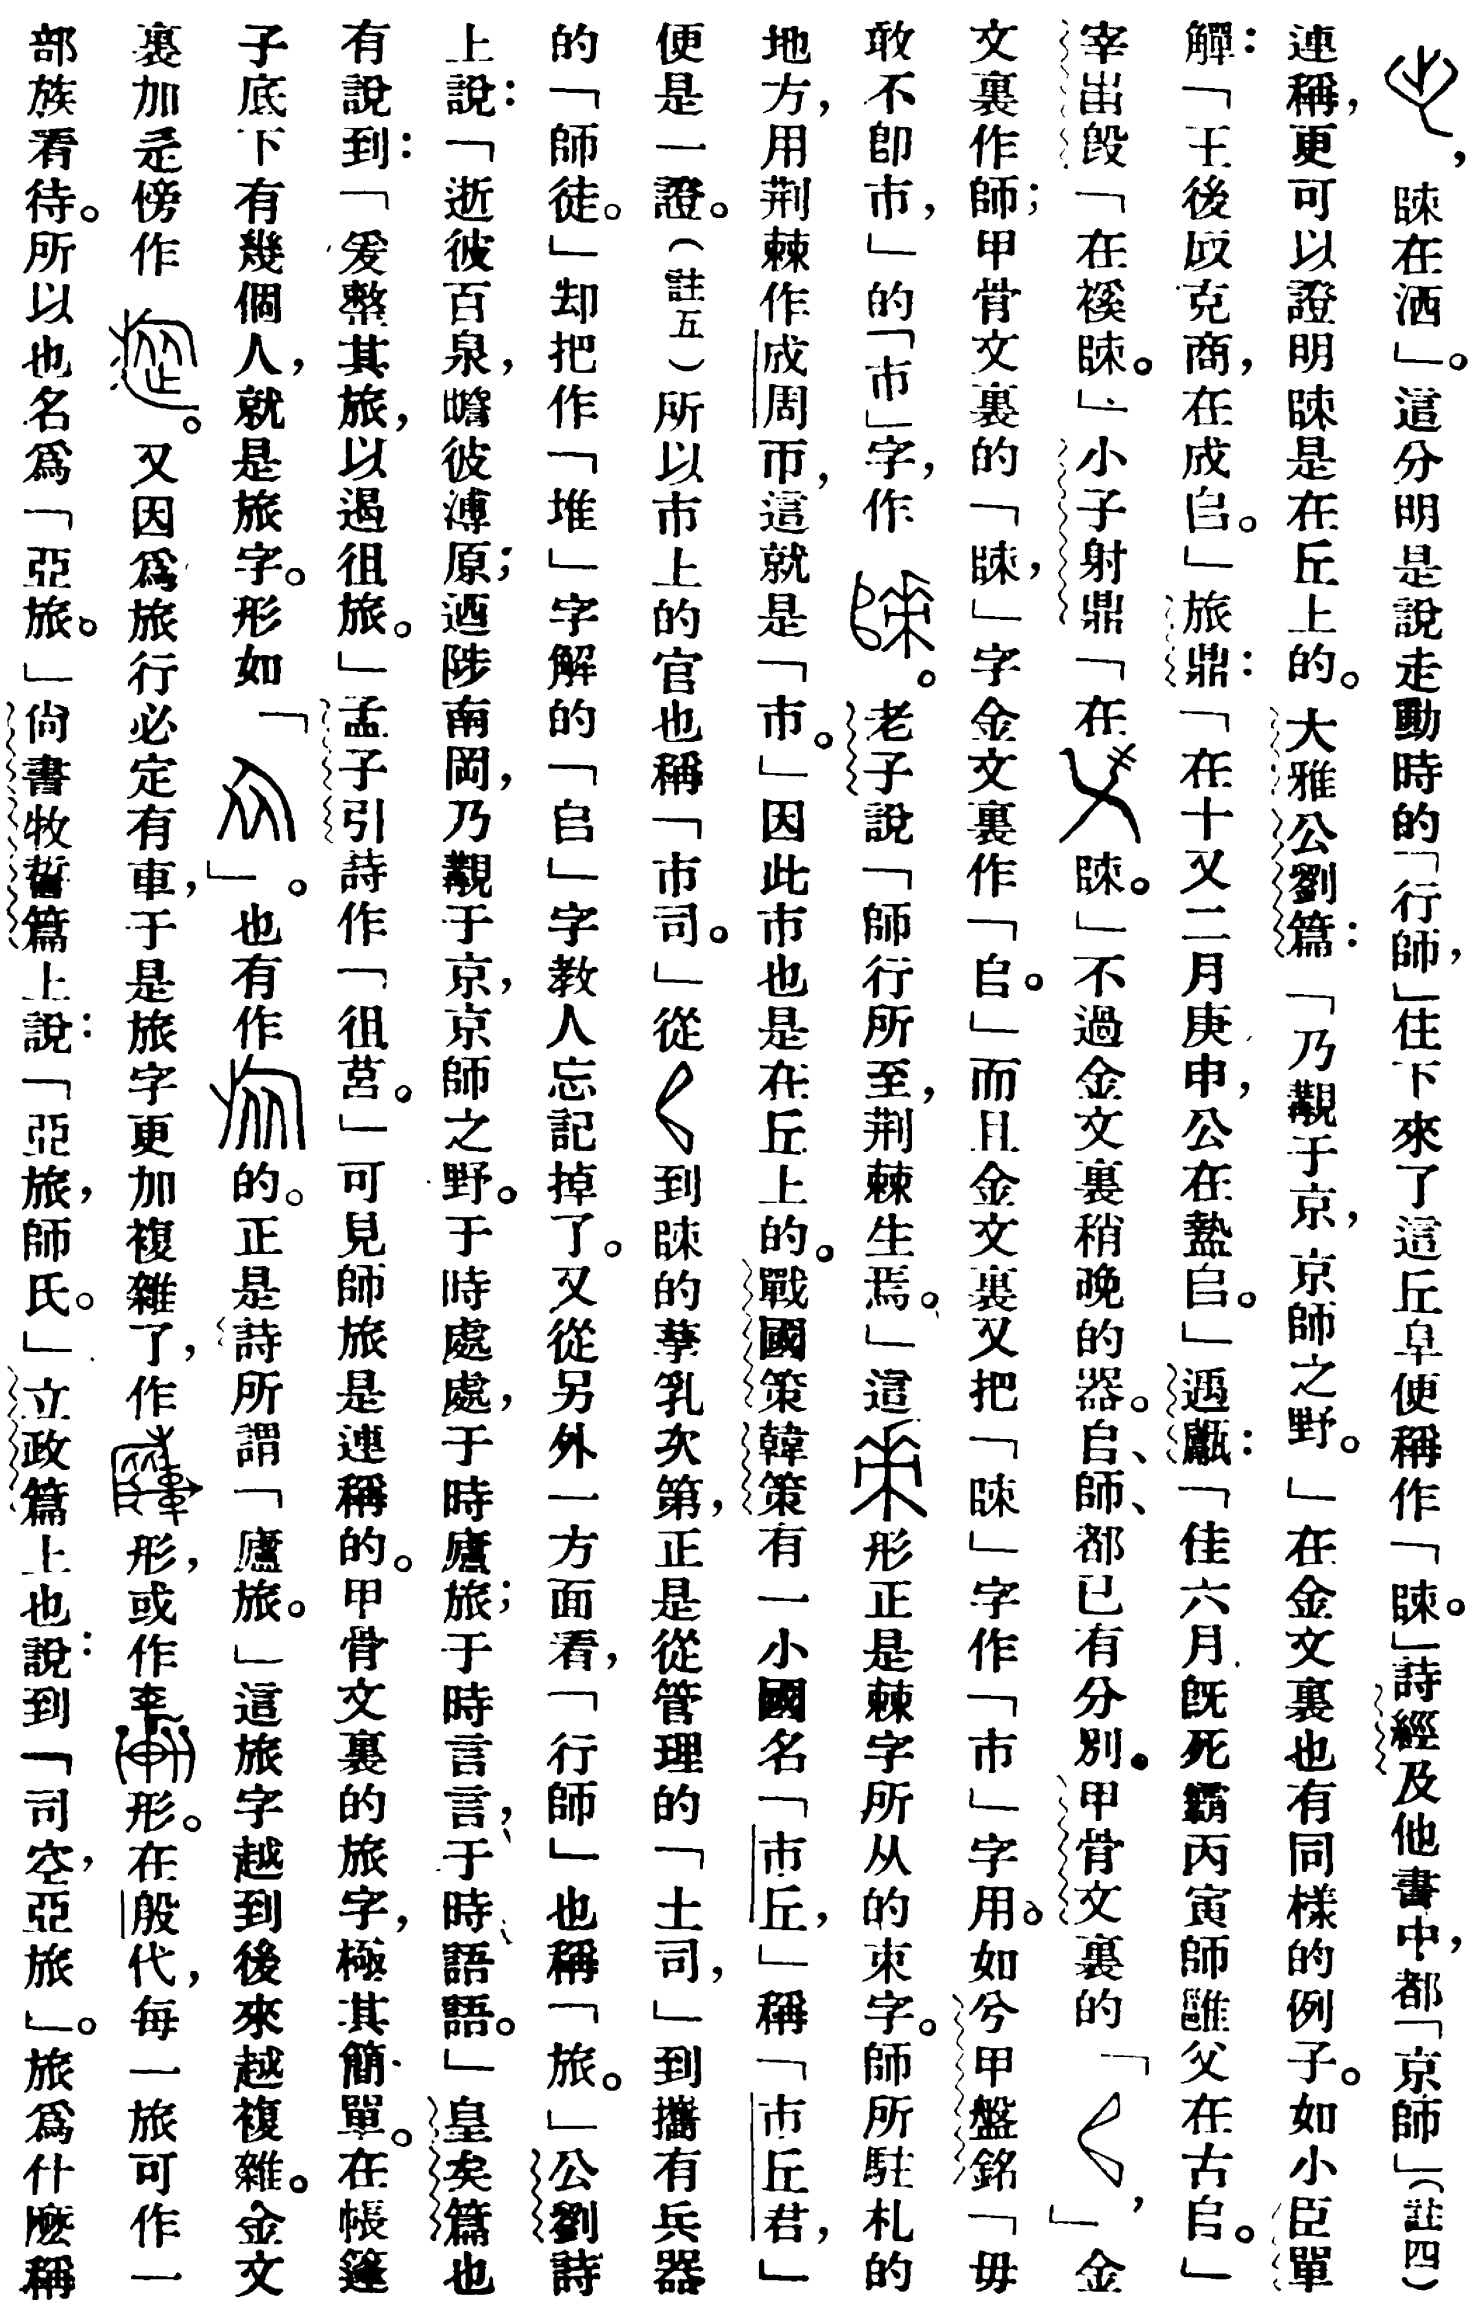 ，𠂤在洒」。這分明是說走動時的「行師，」住下來了這丘阜便稱作「𠂤。」詩經及他書中，都「京師」（註四）
連稱，更可以證明𠂤是在丘上的。大雅公劉篇：「乃覯于京，京師之野。」在金文裏也有同樣的例子。如小臣單
觶：「王後𠬝克商，在成𠂤。」旅鼎：「在十又二月庚申，公在盩𠂤。」遇甗：「隹六月既死霸丙寅師雝父在古𠂤。」
宰甾𣪘「在䙆𠂤。」、小子射鼎「在𠂤。」不過金文裏稍晚的器。𠂤、師、都已有分別。甲骨文裏的「」，金
文裏作師；甲骨文裏的「𠂤，」字金文裏作「𠂤。」而且金文裏又把「𠂤」字作「市」字用。如兮甲盤銘「毋
敢不卽市，」的「市」字，作。老子說「師行所至，荆棘生焉。」這形正是棘字所从的朿字。師所駐札的
地方，用荆棘作成周帀，這就是「市。」因此市也是在丘上的。戰國策韓策有一小國名「市丘，」稱「市丘君，」
便是一證。（註五）所以市上的官也稱「市司。」從到𠂤的孳乳次第，正是從管理的「土司，」到攜有兵器
的「師徒。」却把作「堆」字解的「𠂤」字教人忘記掉了。又從另外一方面看，「行師」也稱「旅。」公劉詩
上說：「逝彼百泉，瞻彼溥原；迺陟南岡，乃覯于京，京師之野。于時處處，于時廬旅；于時言言，于時語語。」皇矣篇也
有說到：「爰整其旅，以遏徂旅。」孟子引詩作「徂莒。」可見師旅是連稱的。甲骨文裏的旅字，極其簡單。在帳篷
子底下有幾個人，就是旅字。形如「」。也有作的。正是詩所謂「廬旅。」這旅字越到後來越複雜。金文
裏加辵傍作。又因爲旅行必定有車，于是旅字更加複雜了，作形，或作形。在殷代，每一旅可作一
部族看待。所以也名爲「亞旅。」尙書牧誓篇上說：「亞旅，師氏。」立政篇上也說：到「司空，亞旅」。旅爲什麽稱